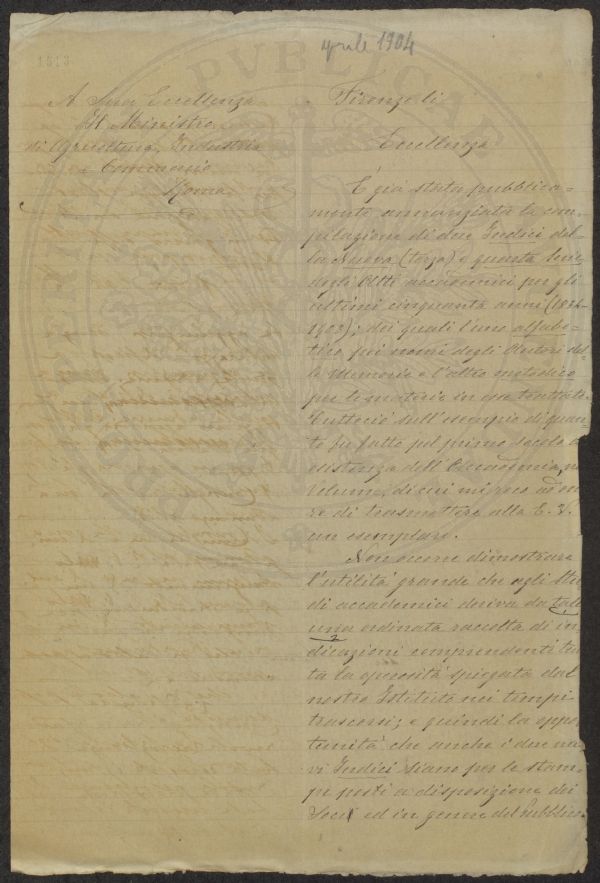 aprile 1904
1513
A Sua Eccellenza
Il Ministro
di Agricoltura, Industria
e Commercio
Roma
Firenze li
Eccellenza
È già stata pubblica=
mente annunziata la com=
pilazione di due Indici del=
la Nuova (terza) e quarta Serie
degli Atti accademici per gli
ultimi cinquanta anni (
1903); dei quali l'uno alfabe=
tico pei nomi degli Autori del=
le Memorie e l'altro metodico
per le materie in esse trattate.
E tutto ciò sull'esempio di quan=
to fu fatto pel primo secolo di
esistenza dell'Accademia, nel
Volume, di cui mi reco ad ono
re di trasmettere alla E. V.
un esemplare.
Non occorre dimostrare
l'utilità grande che agli Stu
di accademici deriva da tale
una ordinata raccolta di in=
dicazioni comprendenti tut
ta la operosità spiegata dal
nostro Istituto nei tempi
trascorsi; e quindi la oppor
tunità che anche i due nuo
vi Indici siano per le stam
pe posti a disposizione dei
Soci ed in genere del Pubblico.
PVBLICAE
PROSPERITATI